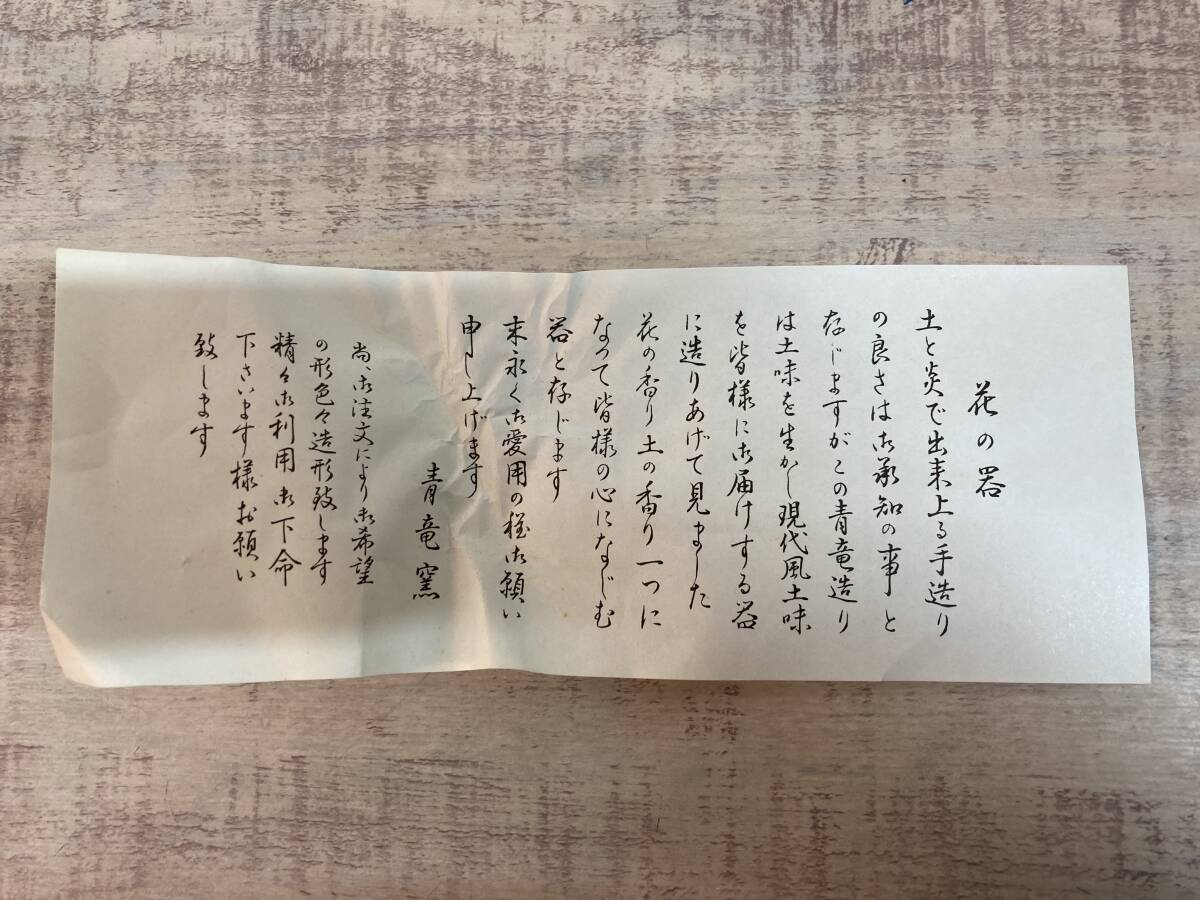 花の器
土と炎で出来上る手造り
の良さは御承知の事と
存じますがこの青竜造り
は土味を生かし現代風土味
を皆様に御届けする器
に造りあげて見ました
花の香り土の香り一つに
なって皆様の心になじむ
器と存じます
末永く御愛用の程御願い
申し上げます
青竜窯
尚、御注文により御希望
の形色々造形致します
精々御利用御下命
下さいます様お願い
致します